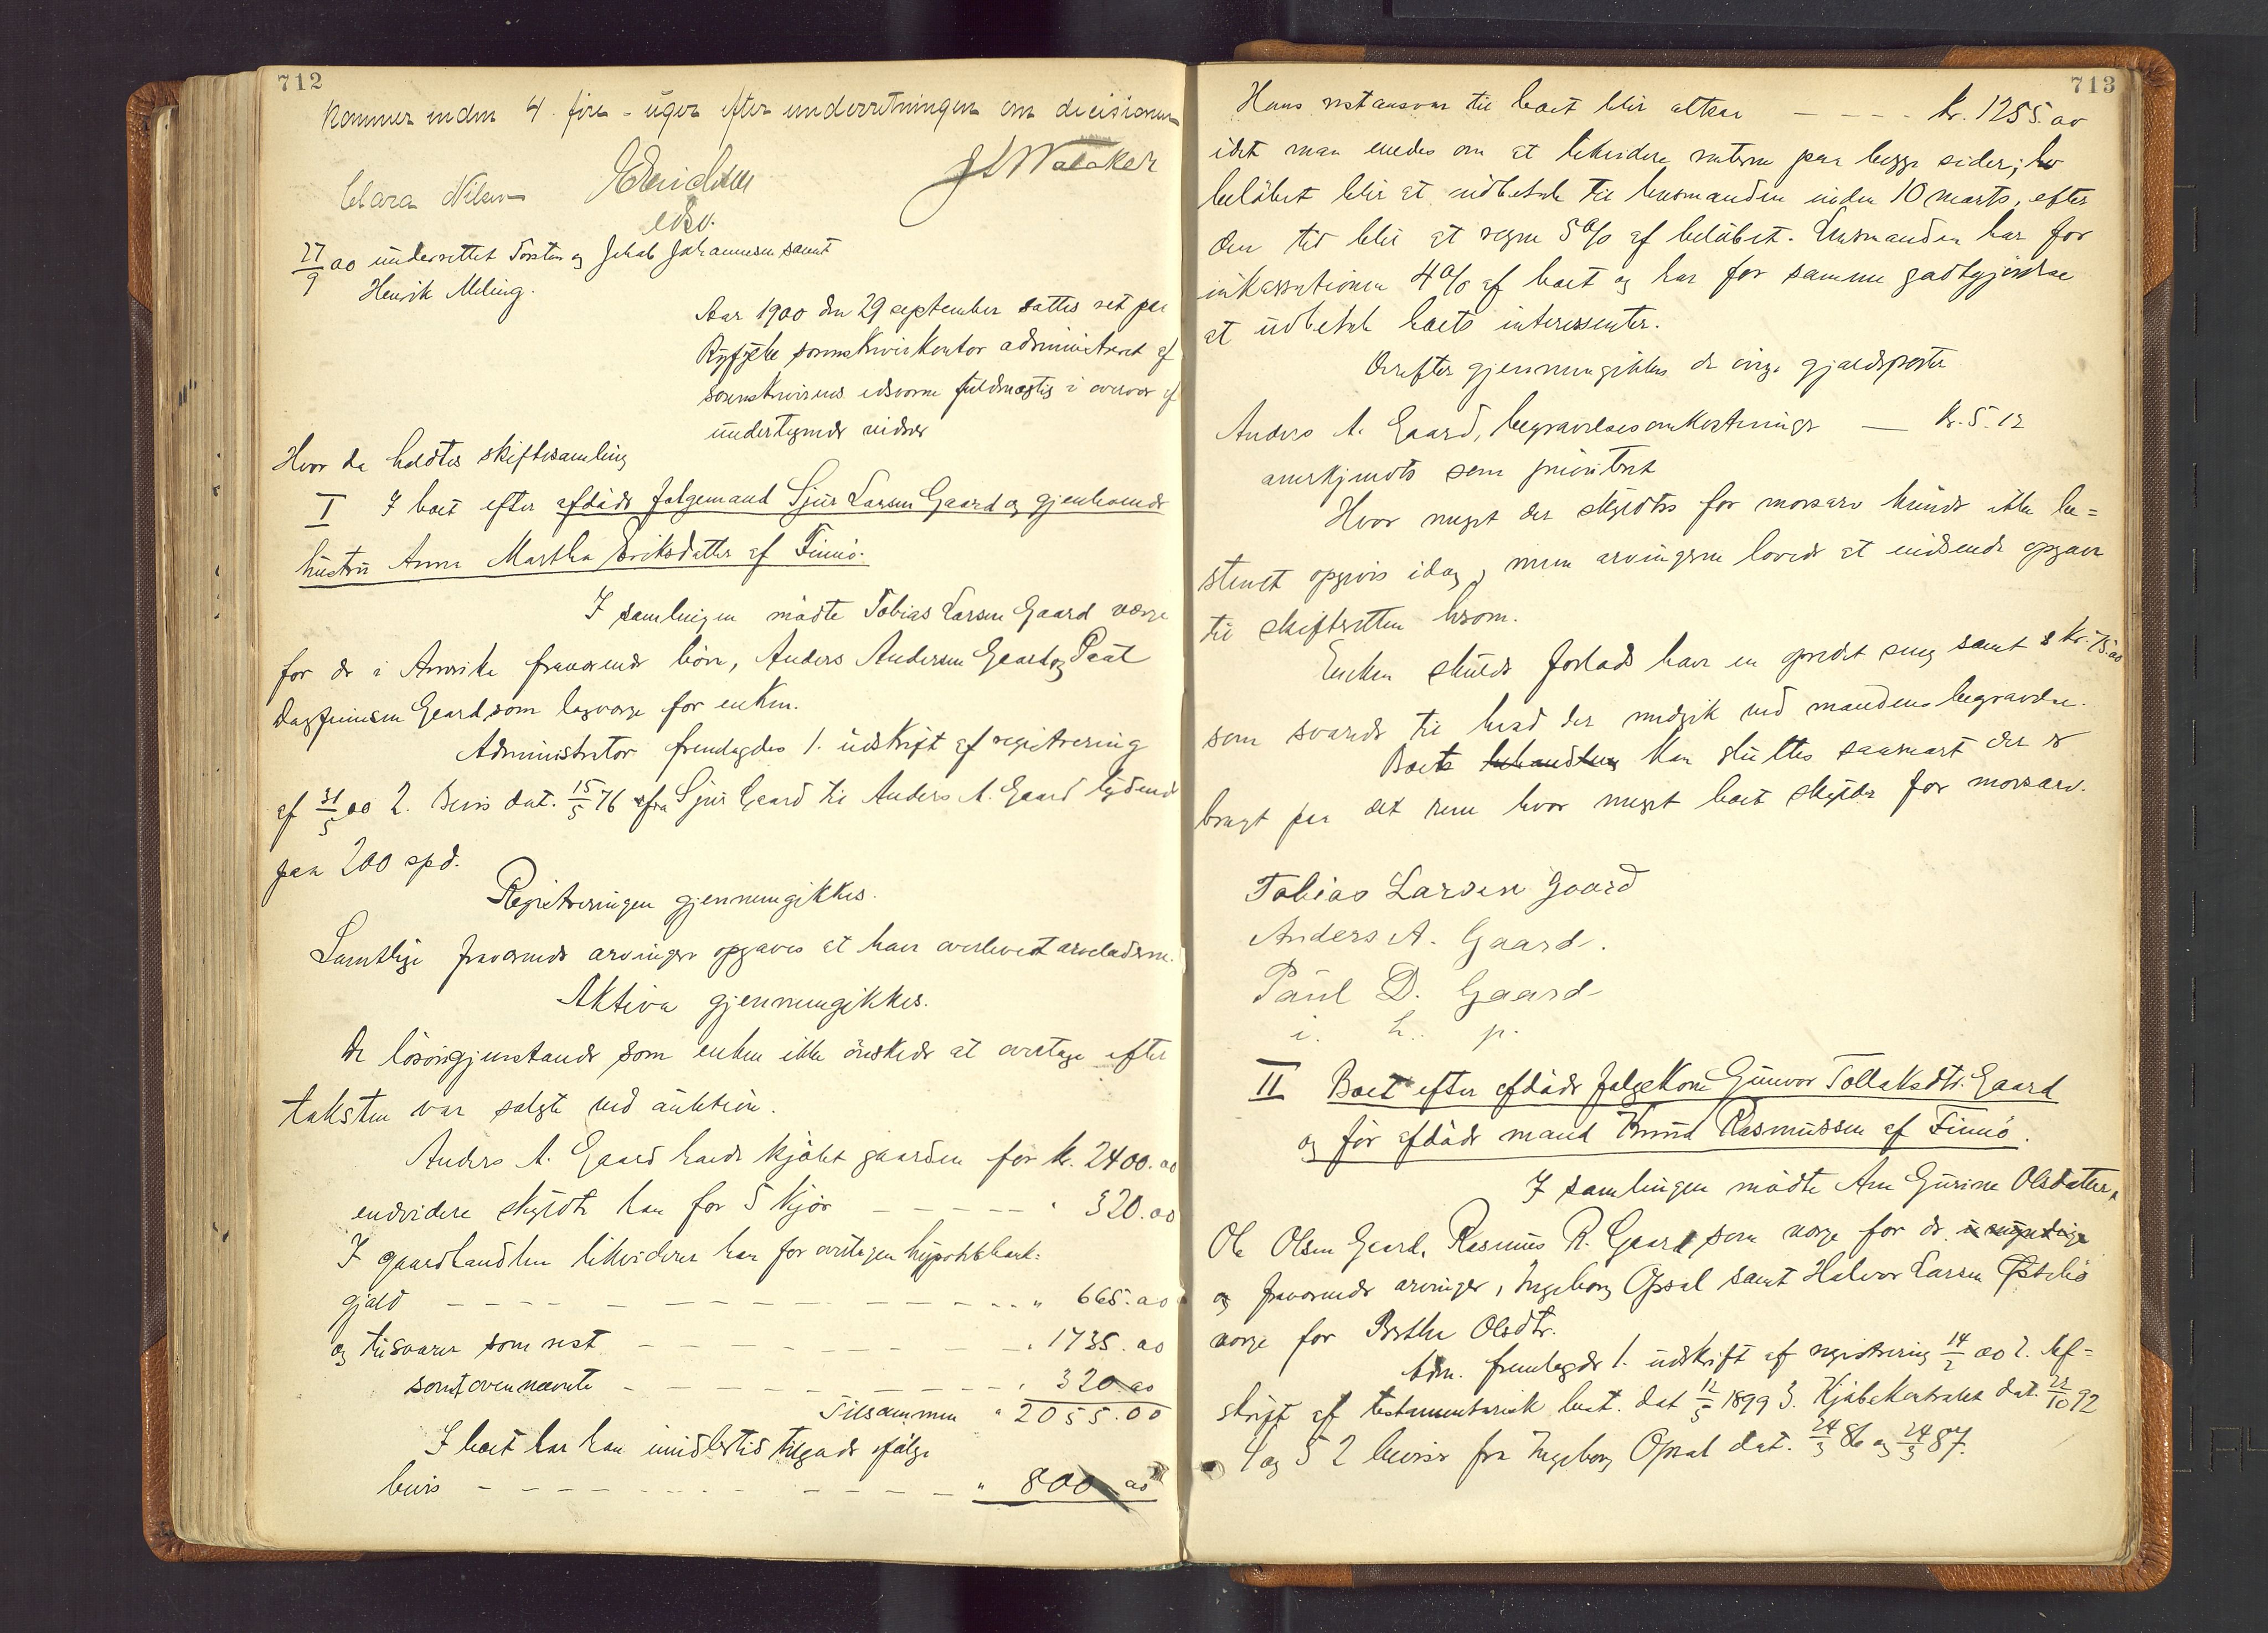 712
kommer inden 4 - fire - uger efter underretningen om decisionen
Clara Nilsen JSWalaker
edsv.
27/9 00 underrettet Torsten og Jakob Johannesen samt
Henrik Meling.
Aar 1900 den 29 september sattes ret paa
Ryfylke sorenskriverkontor administreret af
sorenskriverens edsvorne fuldmægtig i overvær af
undertegnede vidner
Hvor da holdtes skiftesamling
I I boet efter afdøde folgemand Sjur Larsen Gaard og gjenlevende
hustru Anna Martha Eriksdatter af Finnö.
I samlingen mödte Tobias Larsen Gaard værge
for de i Amerika fraværende börn, Anders Andersen Gaard og Paul
Dagfinnsen Gaard som lagværge for enken.
Administrator fremlagdes 1. udskrift af registrering
af 31/5 00 2. Bevis dat. 15/5 76 fra Sjur Gaard til Anders A. Gaard lydende
paa 200 spd.
Registreringen gjennemgikkes.
Samtlige fraværende arvinger opgaves at have overlevet arveladeren.
Aktiva gjennemgikkes.
De lösöregjenstande som enken ikke önskede at overtage efter
taksten var solgte ved auktion.
Anders A. Gaard havde kjöbt gaarden for kr. 2400.00
endvidere skyldte han for 5 kjör - - - - - " 320.00
I gaardhandelen likviderer han for overtagen hypothekbank=
gjæld - - - - - - - - - - " 665.00
og tilsvarer som rest - - - - - - - - " 1735.00
samt ovennævnte - - - - - - - - " 320.00
Tilsammen " 2055.00
I boet har han imidlertid tilgode ifölge
bevis - - - - - - - - - " 800.00
713
Hans restansvar til boet blir altsaa - - - - kr. 1255.00
idet man enedes om at likvidere renterne paa begge sider;
belöbet blir at indbetale til lensmanden inden 10 marts, efter
den tid blir at regne 5% af belöbet. Lensmanden har for
inkassationen 4% af boet og har for samme godtgjörelse
at udbetale boets interessenter.
Derefter gjennemgikkes de övrige gjældsposter
Anders A. Gaard, begravelsesomkostninger — kr. 5.12
anerkjendts som prioritet
Hvor meget der skyldtes for morsarv kunde ikke be=
stemt opgives idag, men arvingerne lovede at indsende opgave
til skifteretten herom.
Enken skulde forlods have en opredt seng samt kr. 75.00
som svarede til hvad der medgik ved mandens begravelse.
Boets behandling kan sluttes saasnart der er
bragt paa det rene hvor meget boet skylder for morsarv.
Tobias Larsen Gaard
Anders A. Gaard.
Paul D. Gaard
i. h. p.
II Boet efter afdöde folgekone Gunvor Tollaksdtr. Gaard
og för afdöde mand Knud Rasmussen af Finnö.
I samlingen mödte Ane Gurine Olsdatter,
Ole Olsen Gaard, Rasmus R. Gaard som værge for de umyndige
og fraværende arvinger, Ingeborg Opsal samt Halvor Larsen
værge for Berthe Olsdtr.
Adm. fremlagde 1. udskrift af registrering 14/2 00 2. Af=
skrift af testamentarisk best. dat 12/5 1899 3. Kjöbekontrakt dat. 22/10 92
4 og 5 2 beviser fra Ingeborg Opsal dat. 24/3 86 og 24/3 87.